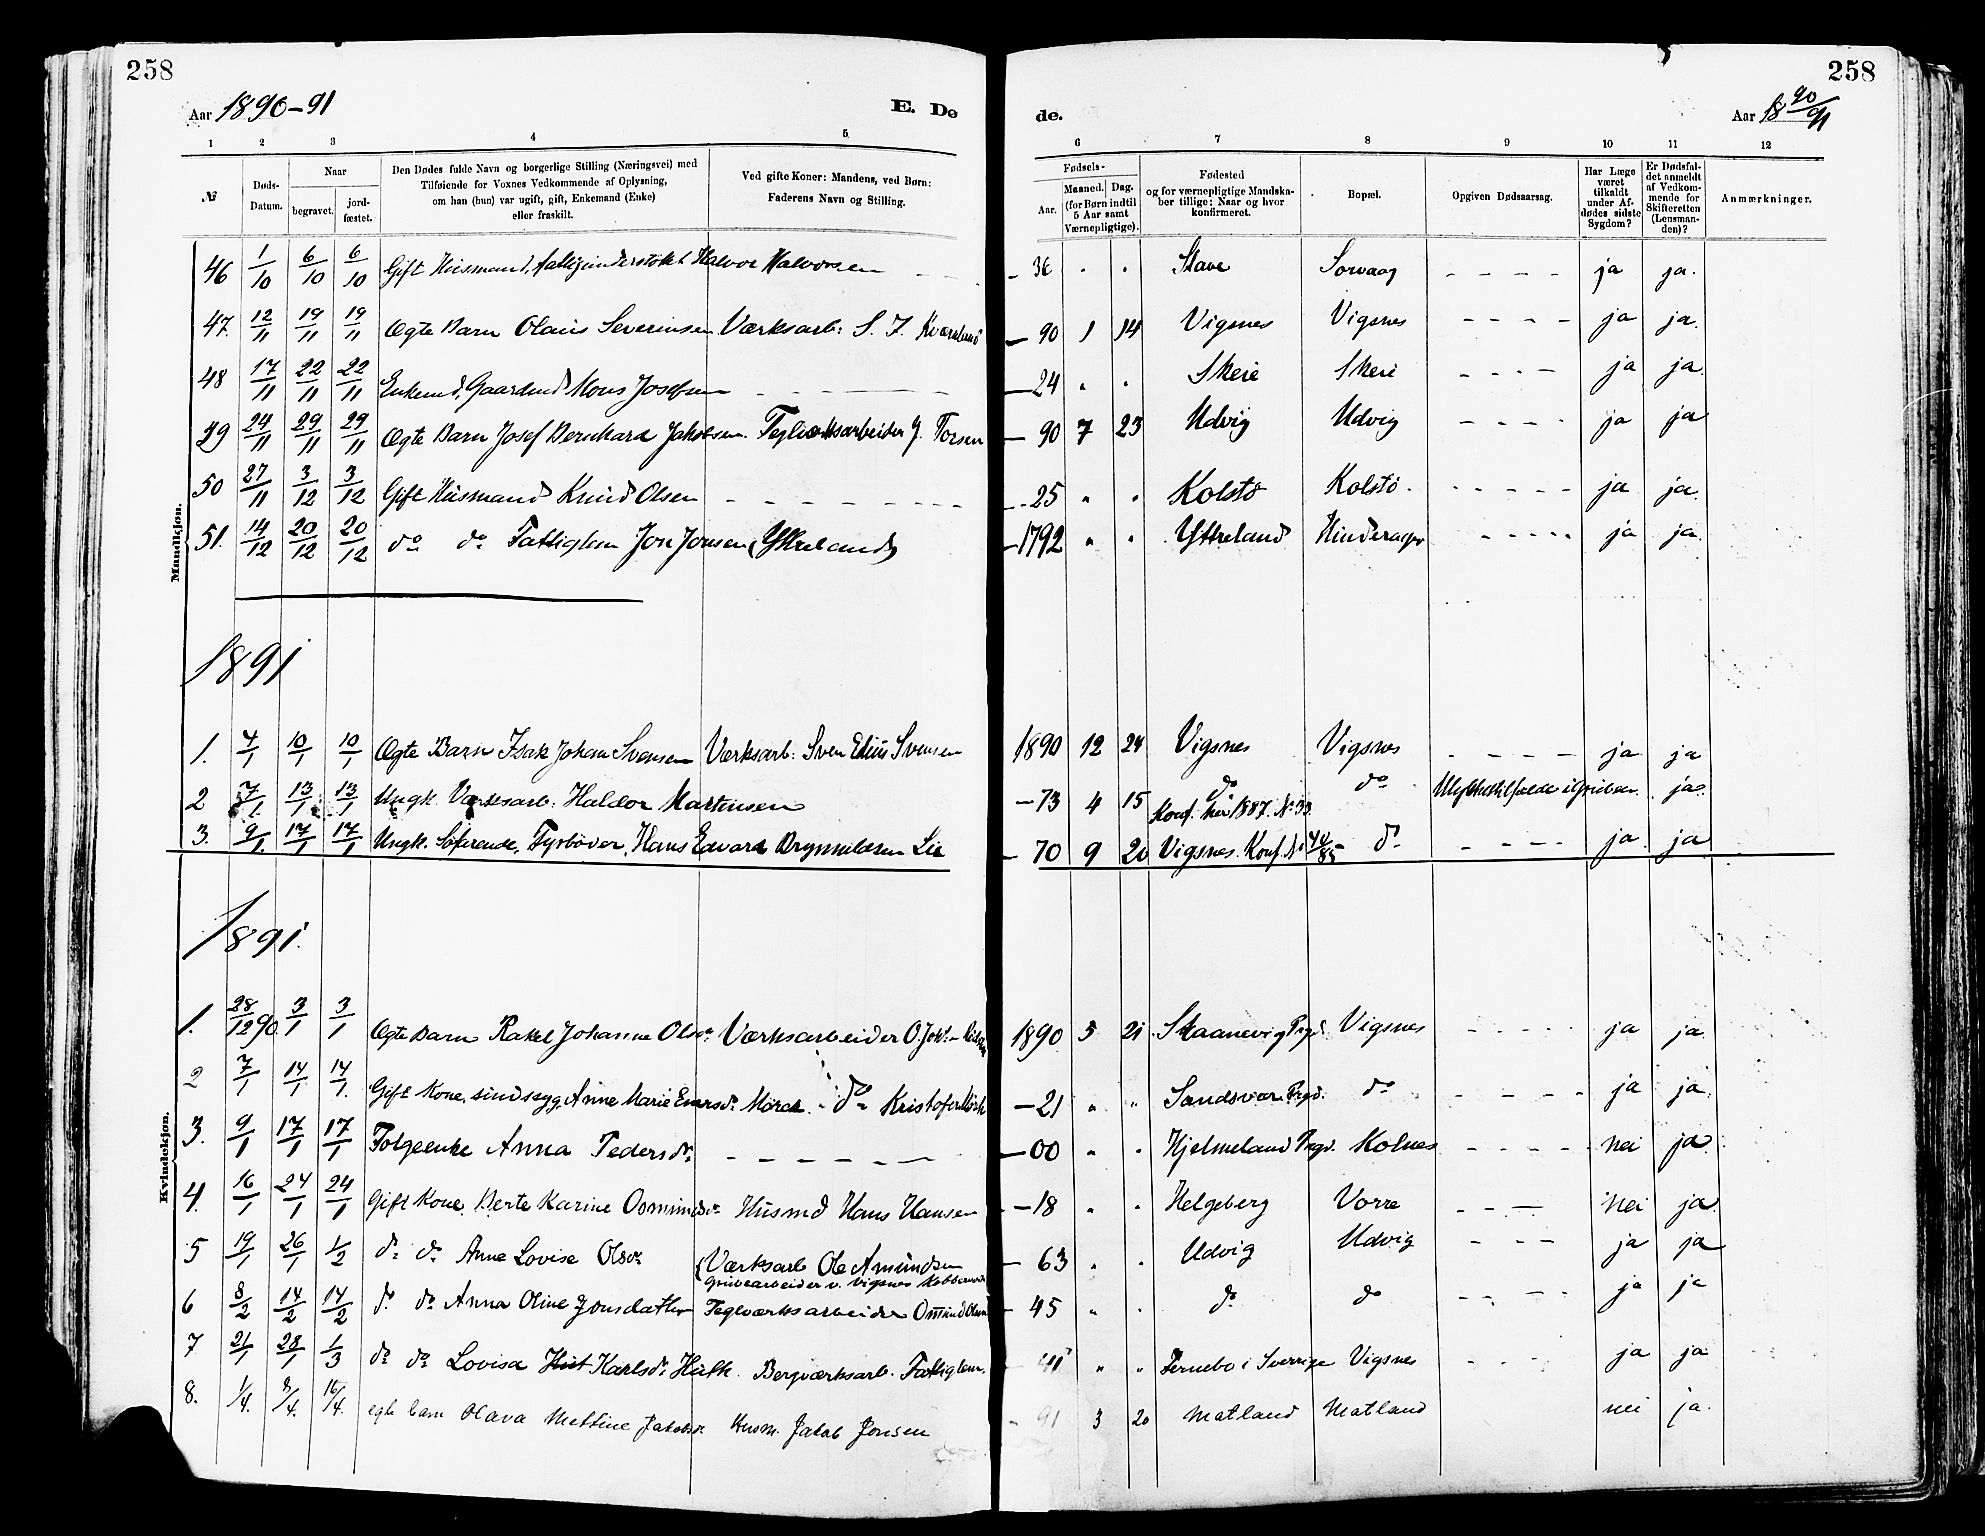 258
258
Aar 1890-91
E. Dø
de.
Aar 18 90/91
1 2 3 4 5 6 7 8 9 10 11 12
№
Døds-Datum.
Naar
begravet.
jord-fæstet.
Den Dødes fulde Navn og borgerlige Stilling (Næringsvei) med
Tilføiende for Voxnes Vedkommende af Oplysning,
om han (hun) var ugift, gift, Enkemand (Enke)
eller fraskilt.
Ved gifte Koner: Mandens, ved Børn:
Faderens Navn og Stilling.
Fødsels-
Aar.
Maaned. Dag.
(for Børn indtil
5 Aar samt
Værnepligtige).
Fødested
og for værnepligtige Mandska-
ber tillige: Naar og hvor
konfirmeret.
Bopæl.
Opgiven Dødsaarsag.
Har Læge
været
tilkaldt
under Af-
dødes sidste
Sygdom?
Er Dødsfal-
det anmeldt
af Vedkom-
mende for
Skifteretten
(Lensman-
den)?
Anmærkninger.
Mandkjøn.
46 1/10 6/10 6/10 Gift Husmand, Halvor Halvorsen - - - 36 " " Stave Sorvaag - - - - ja ja.
47. 12/11 19/11 19/11 Ægte Barn Olaus Severinsen Værksarb: S. J. - 90 1 14 Vigsnes Vigsnes - - - - ja ja.
48 17/11 22/11 22/11 Enkemd, Gaardmd Mons Josefsen - - - - 24 " " Skeie Skeie - - - - ja ja.
49 24/11 29/11 29/11 Ægte Barn Josef Bernhard Jakobsen. Teglværksarbeider J. Torsen - 90 7 23 Udvig Udvig - - - - ja ja
50 27/11 3/12 3/12 Gift Husmand Knud Olsen - - - - 25 " " Kolstø Kolstø. - - - - ja ja.
51. 14/12 20/12 20/12 do do Fattiglem Jon Jonsen (Ytreland) - 1792 " " Yttreland Hinderager - - - - ja ja.
1891
1. 4/1 10/1 10/1 Ægte Barn Isak Johan Svensen Værksarb: Sven Edius Svensen 1890 12 24 Vigsnes Vigsnes - - - - ja ja
2 7/1 13/1 13/1 Ungk. Værksarb. Haldor Martinsen - 73 4 15 do do Ulykkestilfælde i Gruben. ja.
Konf. her 1887. № 33.
3. 9/1 17/1 17/1 Ungk. Søfarende, Fyrbøder, Hans Edvard Brynildsen Lie - 70 9 20 Vigsnes. Konf. № 40/85 do - - - - ja ja
1891.
Kvindekjøn.
1. 28/12 90. 3/1 3/1 Ægte Barn Rakel Johanne Olsdr Værksarbeider O. 1890 5 21 Skaanevig Prgd. Vigsnes - - - - ja ja.
2 7/1 14/1 14/1. Gift Kone, sindssyg, Anne Marie Mørch. - do - Kristofer Mørch - 21 " " Sandsvær Prgd. do - - - - ja ja.
3. 9/1 17/1 17/1 Folgeenke Anna Pedersdr. - - - - 00 " " Hjelmeland Prgd. Kolnes - - - - nei ja.
4. 16/1 24/1 24/1 Gift Kone. Berte Karine Osmundsdr Husmd Hans Hansen - 18 " " Helgeberg Vorre - - - nei ja.
5 19/1 26/1 1/2 do do Anne Lovise Olsdr {Værksarb Ole Amundsen - 63 " " Udvig Udvig - - - ja ja
Grubearbeider v. Vigsnes Kobberværk
6 8/2 14/2 14/2 do do Anna Oline Jonsdatter Teglværksarbeider Omund Olsen - 45 " " do do - - - - ja ja
7 21/1 28/1 1/3 do do Lovisa Karlsdr Hult. Bergværksarb. Fattiglem. - 41 " " Fernebo i Sverrige Vigsnes - - - ja ja
8. 1/4. 8/4. 16/4. egte barn Olava Mettine Jakobsdr. Husm. Jakob Jonsen - 91 3 20 Matland Matland nei ja.